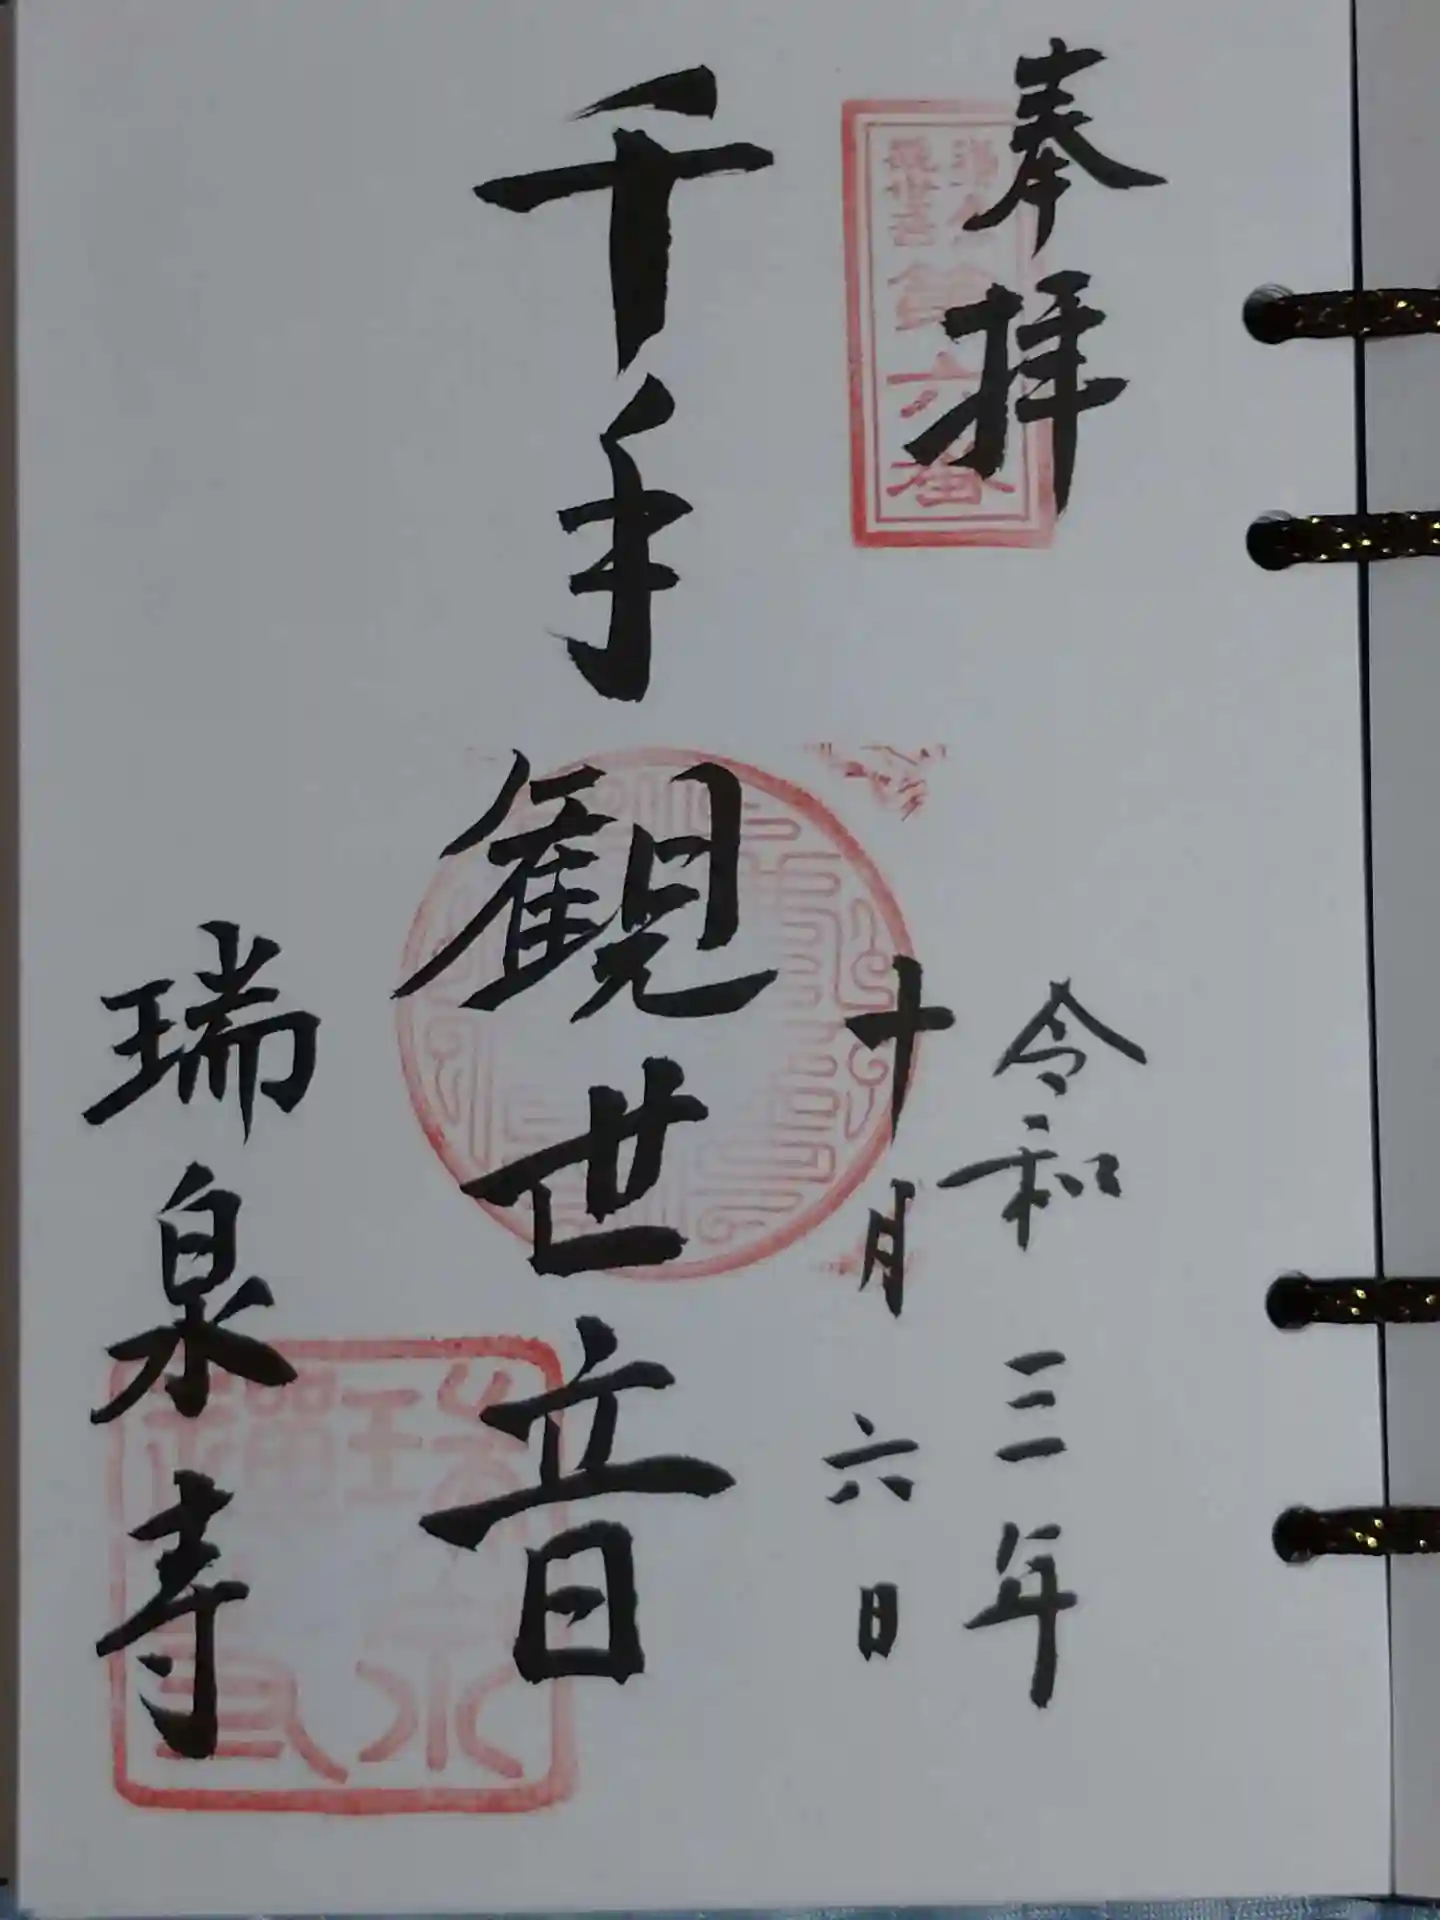 奉拝
第六番
令和三年
十月六日
千手観世音
瑞泉寺